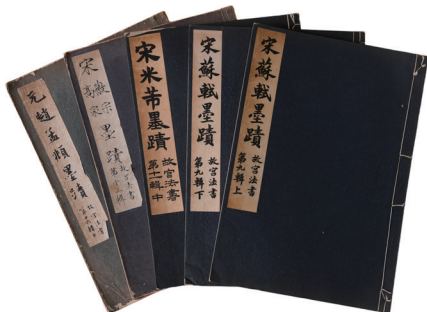 元趙孟頫墨蹟
故宮法書
宋
徽宗
高宗
墨蹟
故宮法書
宋米芾墨蹟
故宮法書
第十一輯中
宋蘇軾墨蹟
故宮法書
第九輯下
宋蘇軾墨蹟
故宮法書
第九輯上